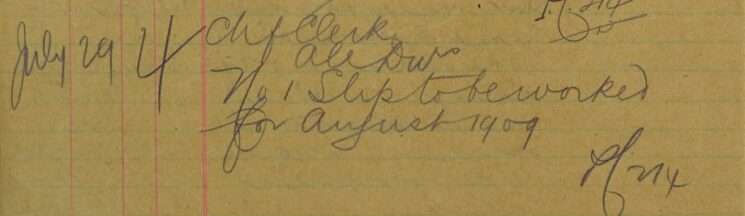 July 29 4 Chf Clerk
All Divs
No 1 Slip to be worked
for August 1909